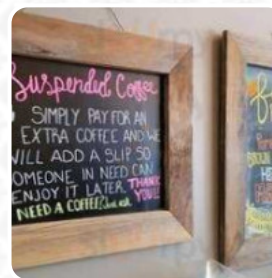 Suspended Coffee
SIMPLY PAY FOR AN
EXTRA COFFEE AND WE
WILL ADD A SLIP SO
SOMEONE IN NEED CAN
ENJOY IT LATER. THANK
YOU!!
NEED A COFFEE? Just ask